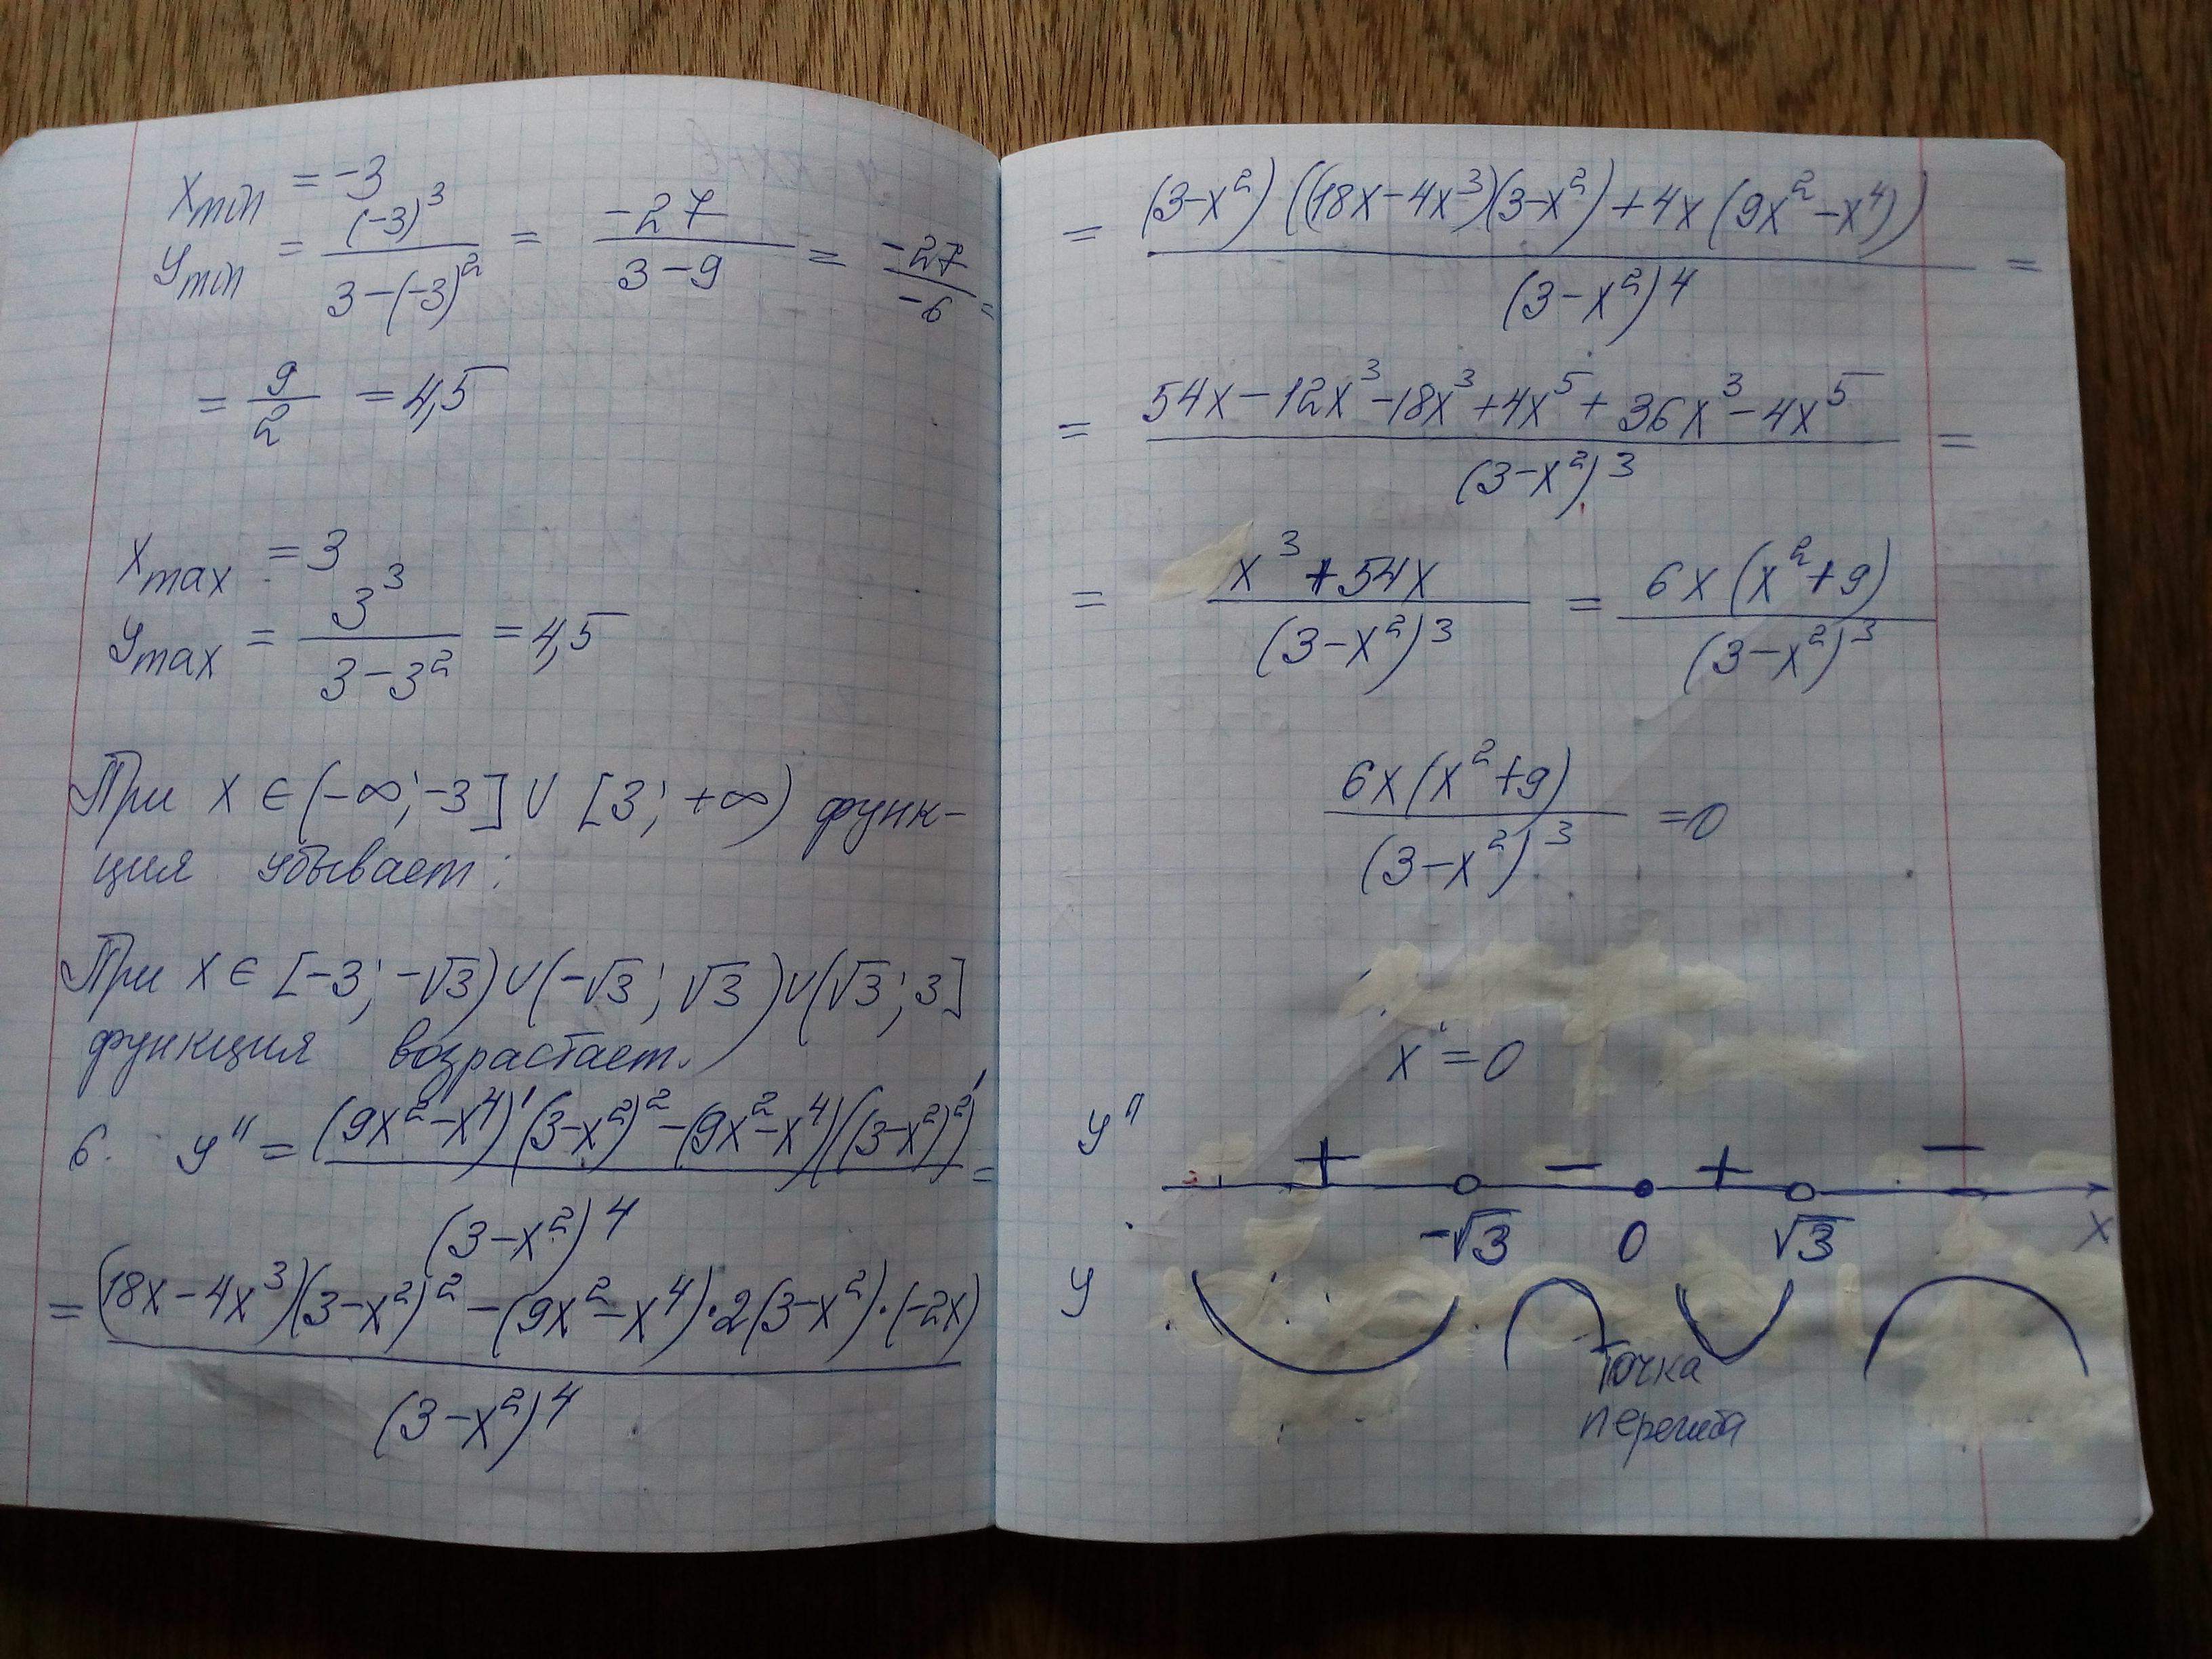 x_min = -3
y_min = (-3)^3 / (3-(-3)^2) = -27 / (3-9) = -27 / -6 =
= 9/2 = 4,5
x_max = 3
y_max = 3^3 / (3-3^2) = 4,5
При x ∈ (-∞; -3] ∪ [3; +∞) функ-
ция убывает;
При x ∈ [-3; -√3) ∪ (-√3; √3) ∪ (√3; 3]
функция возрастает.
6. y'' = ((9x^2-x^4)'(3-x^2)^2-(9x^2-x^4)((3-x^2)^2)') / (3-x^2)^4 =
= ((18x-4x^3)(3-x^2)^2-(9x^2-x^4)·2(3-x^2)·(-2x)) / (3-x^2)^4
= (3-x^2)((18x-4x^3)(3-x^2)+4x(9x^2-x^4)) / (3-x^2)^4 =
= (54x-12x^3-18x^3+4x^5+36x^3-4x^5) / (3-x^2)^3 =
= (x^3+54x) / (3-x^2)^3 = 6x(x^2+9) / (3-x^2)^3
6x(x^2+9) / (3-x^2)^3 = 0
x = 0
y'' + - + -
-√3 0 √3 x
y
Точка
перегиба